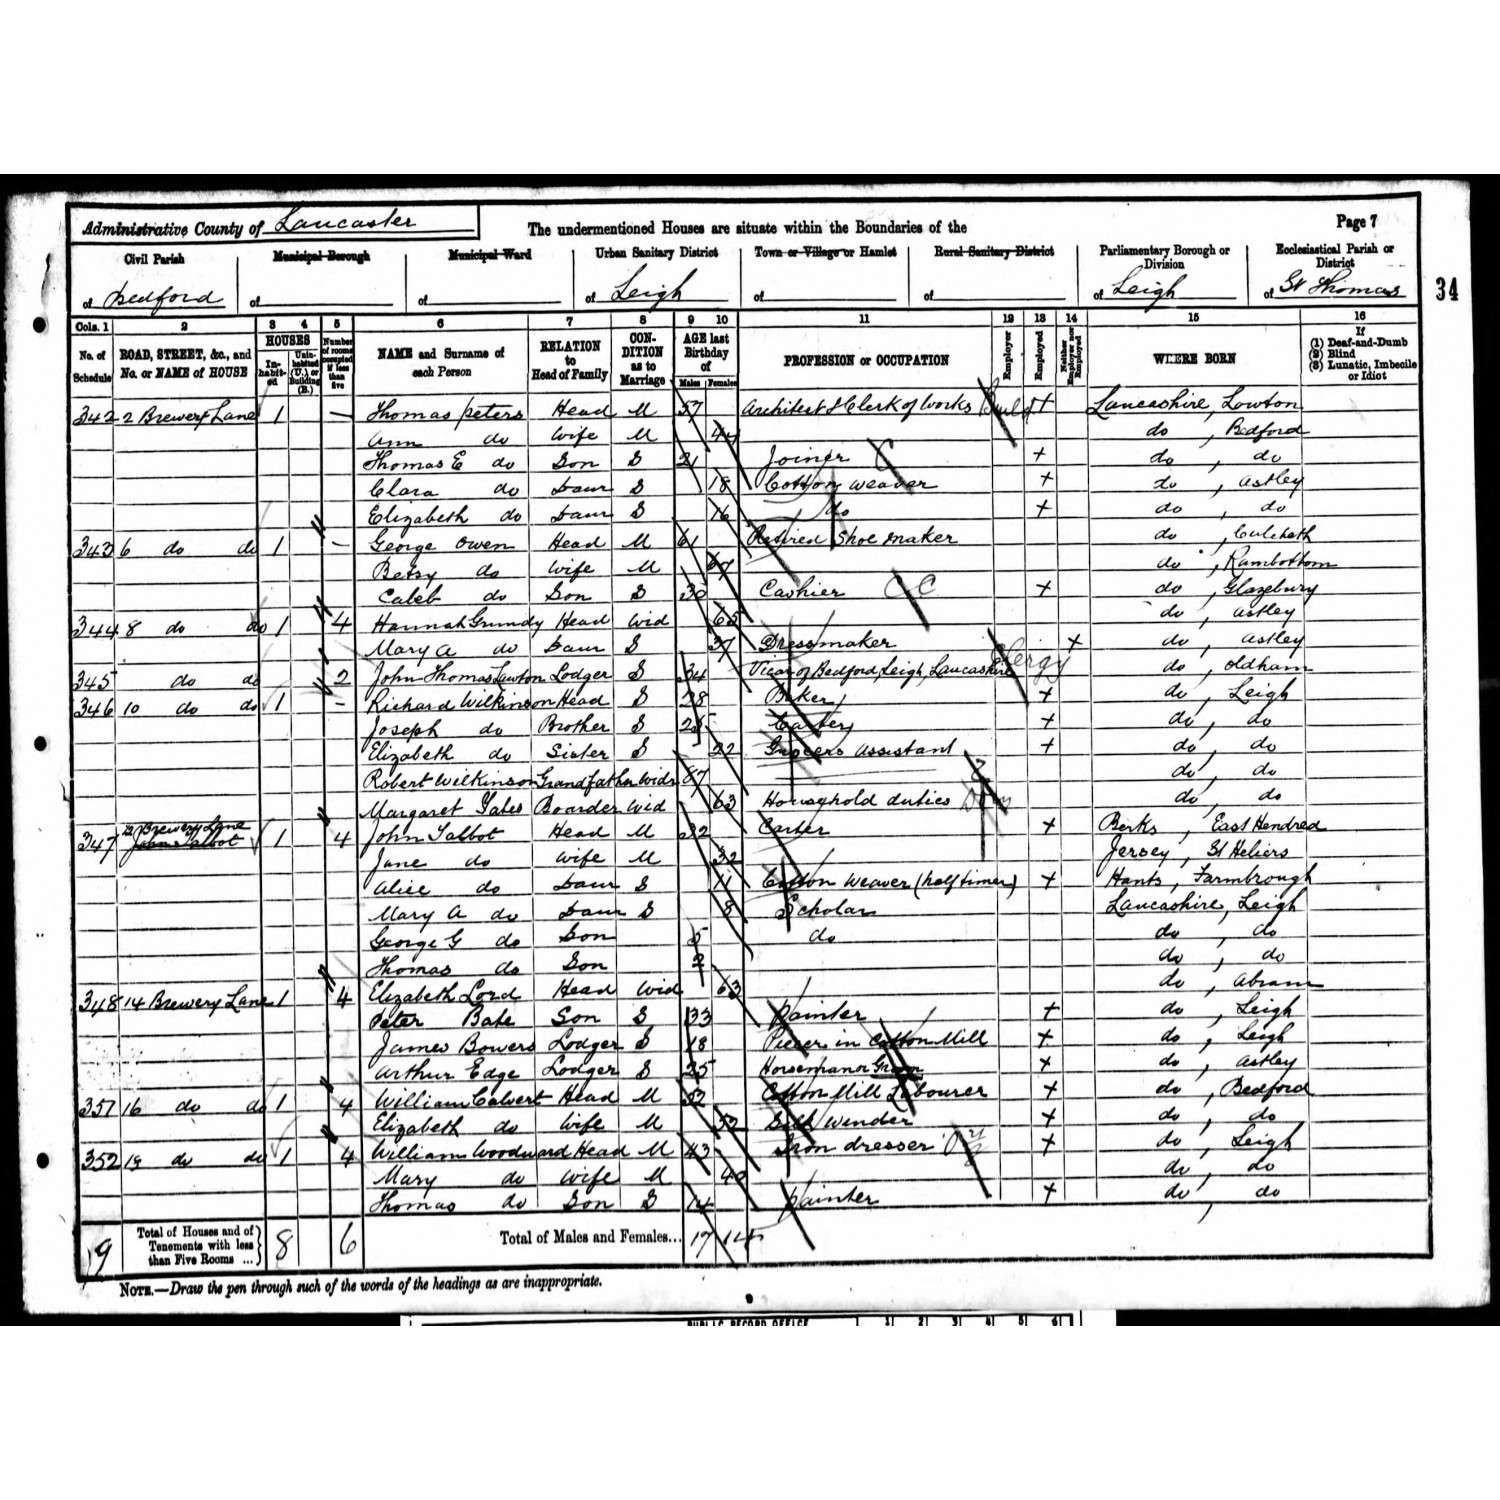 Administrative County of Lancaster
The undermentioned Houses are situate within the Boundaries of the
Page 7
34
Civil Parish of Bedford
Municipal Borough of
Municipal Ward of
Urban Sanitary District of Leigh
Town or Village or Hamlet of
Rural Sanitary District of
Parliamentary Borough or Division of Leigh
Ecclesiastical Parish or District of St Thomas
Cols. 1 2 3 4 5 6 7 8 9 10 11 12 13 14 15 16
No. of Schedule
ROAD, STREET, &c., and No. or NAME of HOUSE
HOUSES
In-habit-ed
Unin-habited (U.) or Building (B.)
Number of rooms occupied if less than five
NAME and Surname of each Person
RELATION to Head of Family
CON-DITION as to Marriage
AGE last Birthday of
Males Females
PROFESSION or OCCUPATION
Employer
Employed
Neither Employer nor Employed
WHERE BORN
If (1) Deaf-and-Dumb (2) Blind (3) Lunatic, Imbecile or Idiot
342 2 Brewery Lane 1 — Thomas Peters Head M 57 Architect & Clerk of Works Build + Lancashire, Lowton
Ann do Wife M 44 do, Bedford
Thomas E do Son S 21 Joiner C + do, do
Clara do Daur S 18 Cotton Weaver + do, Astley
Elizabeth do Daur S 16 do + do, do
343 6 do do 1 — George Owen Head M 61 Retired Shoe maker do, Culcheth
Betsy do Wife M 67 do, Rambottom
Caleb do Son S 30 Cashier C C + do, Glazebury
344 8 do do 1 4 Hannah Grundy Head Wid 65 do, Astley
Mary A do Daur S 37 Dressmaker + do, Astley
345 do do 2 John Thomas Lawton Lodger S 34 Vicar of Bedford, Leigh, Lancashire Clergy do, Oldham
346 10 do do 1 — Richard Wilkinson Head S 28 Baker + do, Leigh
Joseph do Brother S 25 Carter + do, do
Elizabeth do Sister S 22 Grocers Assistant + do, do
Robert Wilkinson Grandfather Widr 87 do, do
Margaret Yates Boarder Wid 63 Household duties do, do
347 12 Brewery Lane John Talbot 1 4 John Talbot Head M 32 Carter + Berks, East Hendred
Jane do Wife M 32 Jersey, St Heliers
Alice do Daur S 11 Cotton Weaver (half timer) + Hants, Farmbrough
Mary A do Daur S 8 Scholar Lancashire, Leigh
George G do Son 5 do do, do
Thomas do Son 2 do, do
348 14 Brewery Lane 1 4 Elizabeth Lord Head Wid 63 do, Abram
Peter Bate Son S 33 Painter + do, Leigh
James Bowers Lodger S 18 Piecer in Cotton Mill + do, Leigh
Arthur Edge Lodger S 25 Horseman or Groom + do, Astley
351 16 do do 1 4 William Calvert Head M 52 Cotton Mill Labourer + do, Bedford
Elizabeth do Wife M 52 Silk Winder + do, do
352 18 do do 1 4 William Woodward Head M 43 Iron dresser + do, Leigh
Mary do Wife M 40 do, do
Thomas do Son S 14 Painter + do, do
9 Total of Houses and of Tenements with less than Five Rooms ... 8 6 Total of Males and Females... 17 14
NOTE.—Draw the pen through such of the words of the headings as are inappropriate.
PUBLIC RECORD OFFICE 1 2 3 4 5 6